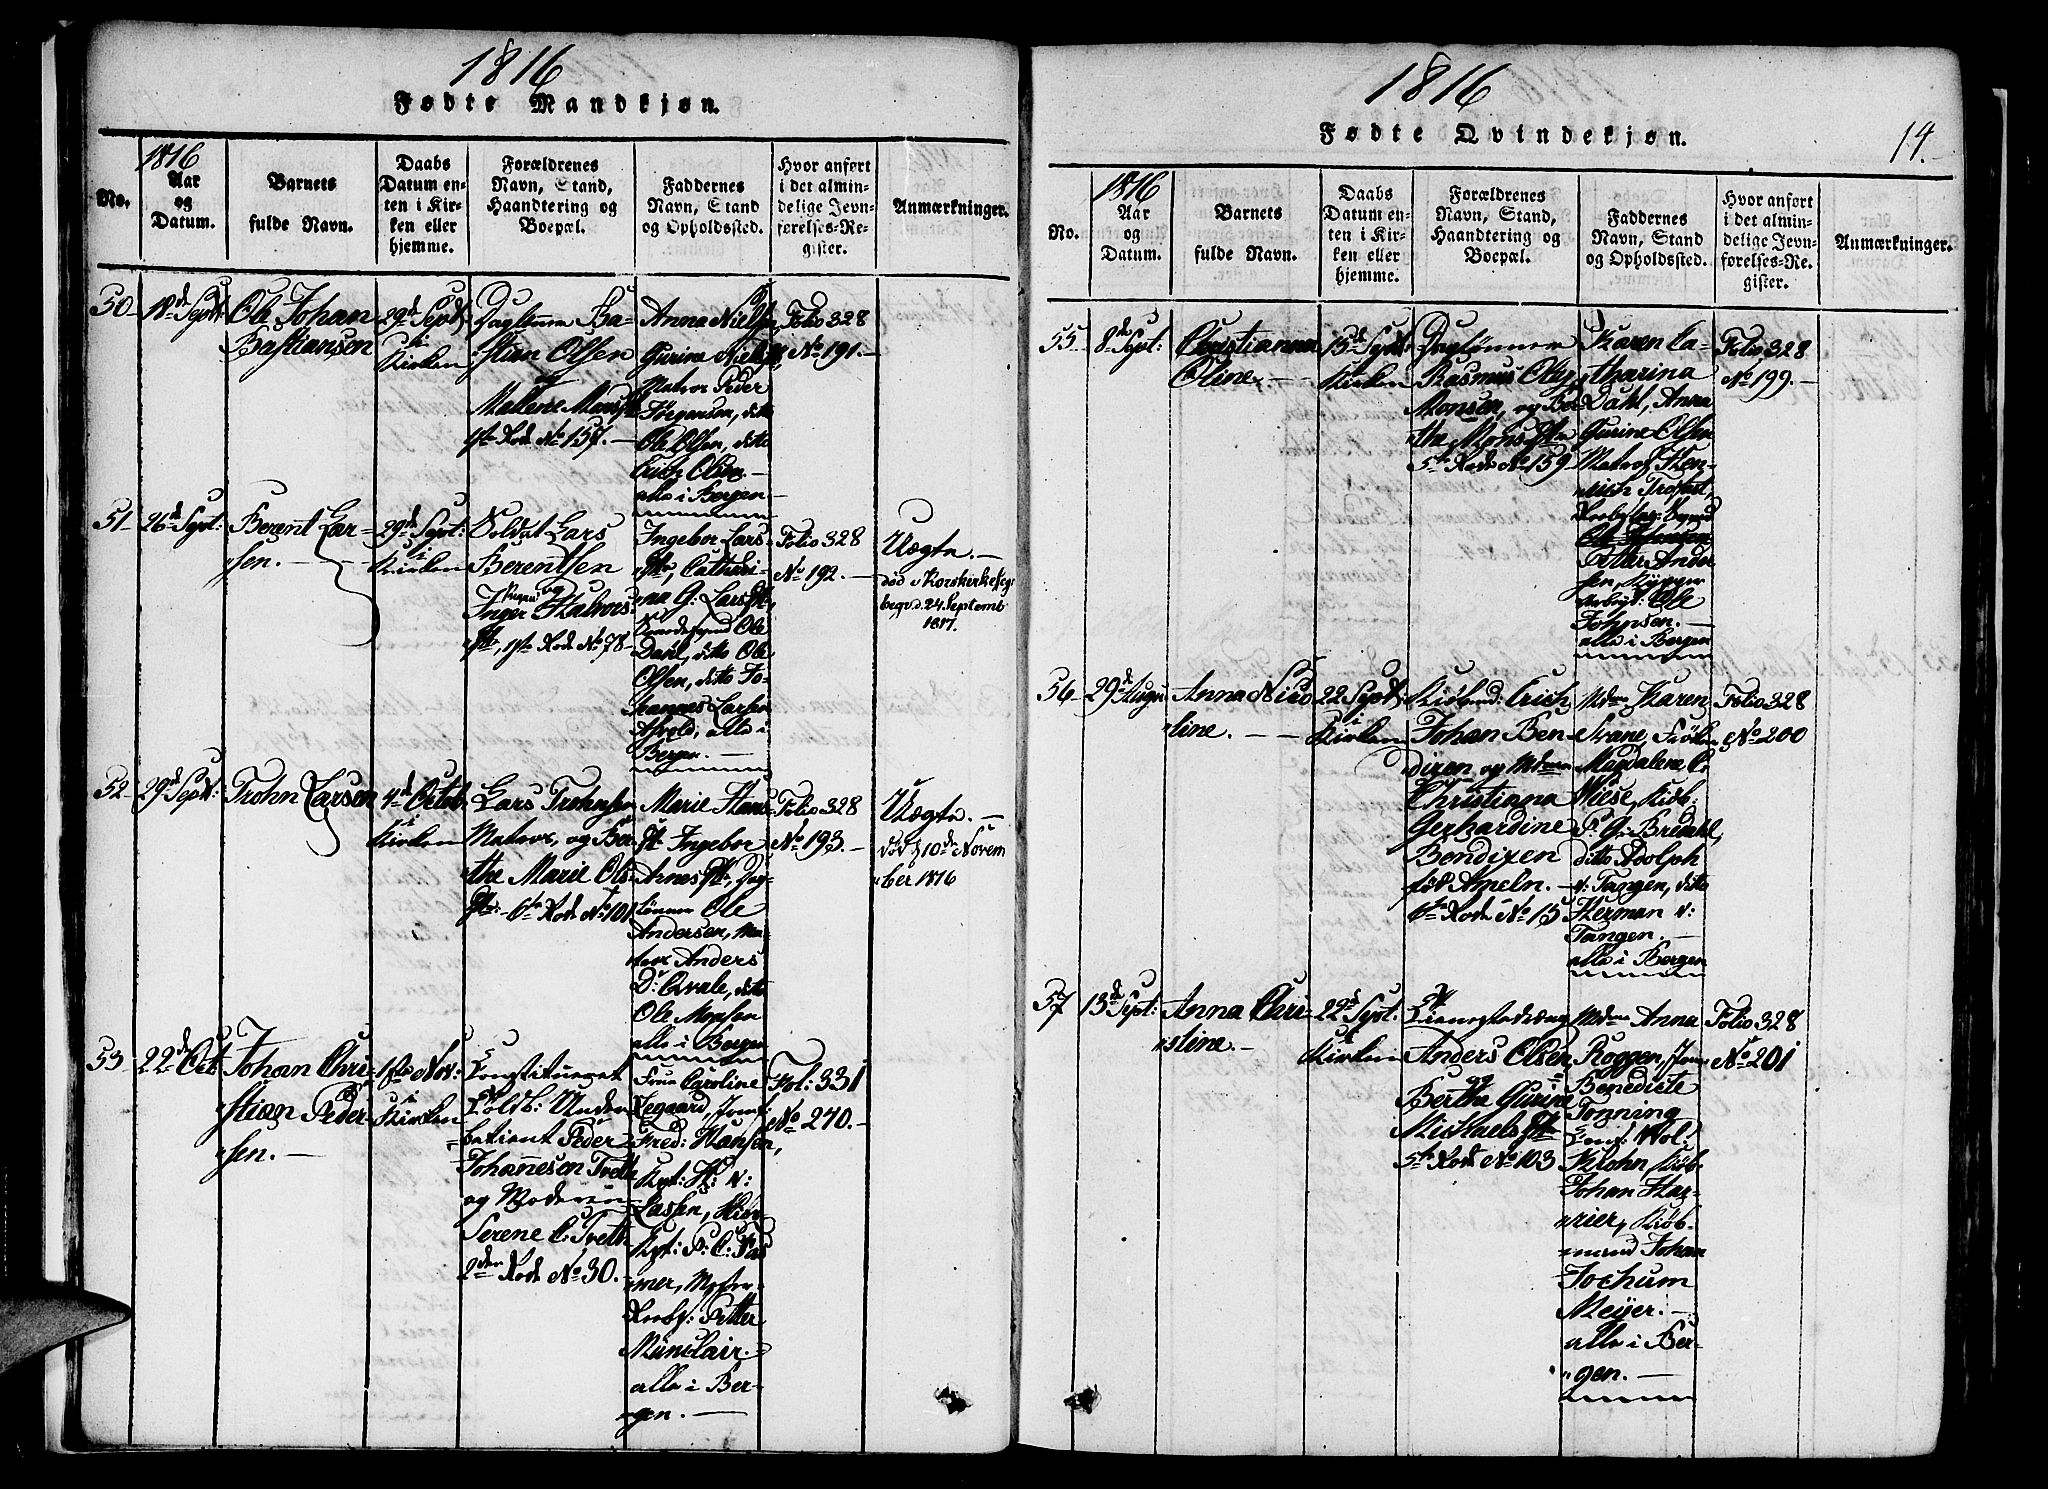 1816
Fødte Mandkjøn.
No.
1816
Aar
og
Datum.
Barnets
fulde Navn.
Daabs
Datum en-
ten i Kir-
ken eller
hjemme.
Forældrenes
Navn, Stand,
Haandtering og
Boepæl.
Faddernes
Navn, Stand
og Opholdssted.
Hvor anført
i det almin-
delige Jevn-
førelses-Re-
gister.
Anmærkninger.
50
18de Sept:
Ole Johan
Bastiansen
29de Sept:
i
Kirken
Daglønner Ba-
stian Olsen
og
Malene Mons
1ste Rode No 157.
Anna Niels
Gurina Niels
Matros Peder
Jørgensen, ditto
Ole Olsen, ditto
Erich Olsen
alle i Bergen
Folio 328
No 191.
51
26de Sept:
Berent Lar-
sen.
29de Sept:
i
Kirken
Soldat Lars
Berentsen
og
Pigen
Inger Halvors
1ste Rode No 78
Ingebor Lars
Cathari-
na G: Lars
Ole
Dahl, ditto Ole
Olsen, ditto Jo-
hannes Larsen
alle i
Bergen.
Folio 328
No 192.
Uægte.
død i Korskirkesog
begr: d. 24 Septemb
1817.
52
29de Sept:
Trohn Larsen
4de Octob
i
Kirken
Lars Trohnsen
Matros, og Ber-
the Marie Ols
6te Rode No 101
Marie Hans
Ingebor
Arnes, Dag-
lønner Ole
Andersen, Ma-
tros Anders
D: Qvale, ditto
Ole Monsen
alle i Bergen
Folio 328
No 193.
Uægte.
død d 10de Novem
ber 1816
53
22de Oct
Johan Chri-
stian Peder-
sen.
1ste Nov:
i
Kirken
Constitueret
Toldb: Under
betient Peder
Johannesen Tveth
og Moderen
Serene C: Tveth
2den Rode No 30.
Frue Caroline
Jomf:
Fred: Hansen,
Kpt: H: v:
Lassen,
Kpt: P: C:
mer,
Petter
Münclair.
alle i Ber-
gen.
Fol: 331
No 270.
1816
Fødte Qvindekjøn.
14.
No.
1816
Aar
og
Datum.
Barnets
fulde Navn.
Daabs
Datum en-
ten i Kir-
ken eller
hjemme.
Forældrenes
Navn, Stand,
Haandtering og
Boepæl.
Faddernes
Navn, Stand
og Opholdssted.
Hvor anført
i det almin-
delige Jevn-
førelses-Re-
gister.
Anmærkninger.
55
8de Sept:
Christianna
Oline.
15de Sept
Kirken
Daglønner
Rasmus Ole
Monsen, og Ber-
the Mons
5te Rode No 159
Karen Ca-
tharina
Dahl, Anna
Gurine Olsen
Matros Hen-
rich Trofast,
Ole Johansen
Peter Ander
sen,
Ole
Johnsen.
alle i Bergen
Folio 328
No 199.
56
29de Augu
Anna Nico
line.
22 Sept:
i
Kirken
Kiøbmd: Erich
Johan Ben-
dixen og Mdme
Christianna
Gerhardine
Bendixen
fød Ameln.
6te Rode No 15
Mdme Karen
Svane, Frøken
Magdalene C:
Wiese, Kiøb:
P: G: Bredahl,
ditto Adolph
v: Tangen, ditto
Herman v:
Tangen.
alle i Bergen
Folio 328
No 200
57
13de Sept:
Anna Chri-
stine.
22de Sept:
i
Kirken
Anders Olsen
og
Bertha Gurine
Michaels
5te Rode No 103
Mdme Anna
Roggen, Jomf
Benediete
Tonning
Wol:
Klohn, Kiøb:
Johan Har-
rier, Kiøb-
mand Johan
Jochum
Meÿer.
alle i Ber-
gen.
Folio 328
No 201